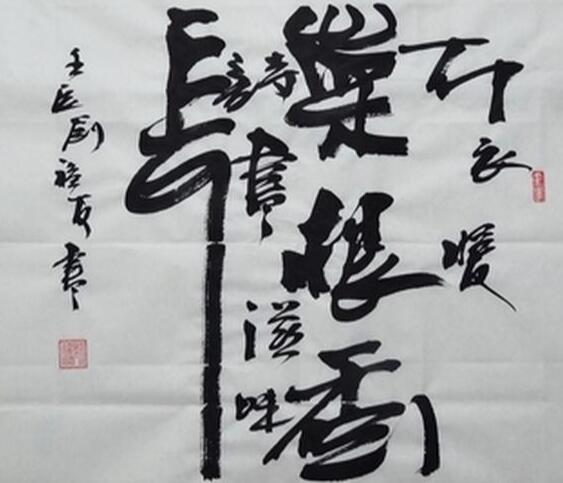 布衣暖
菜根香
詩書滋味
長
壬辰 書